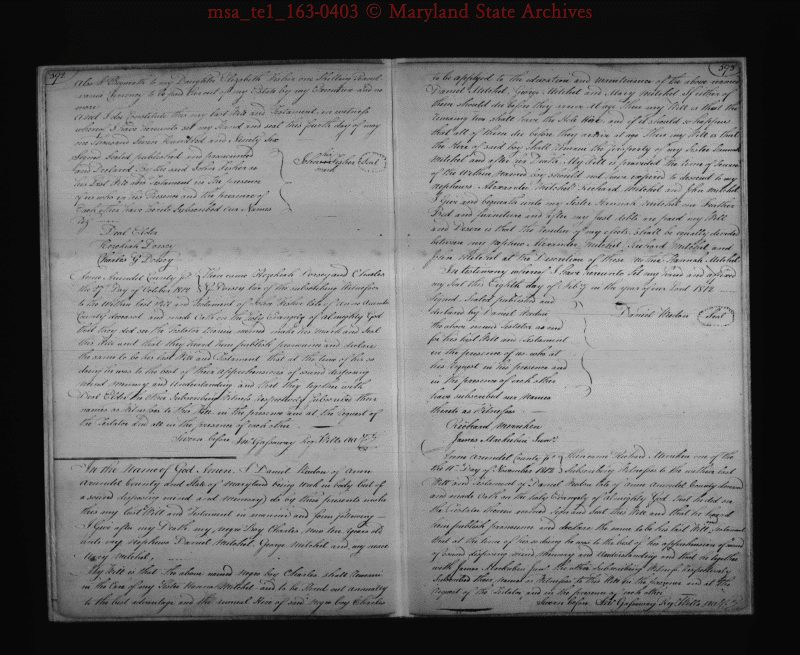 msa_te1_163-0403 © Maryland State Archives
392
Also I Bequeath to my Daughter Elizabeth Fisher one Shilling
to be paid her out of my Estate by my Executor and no
more
And I do Constitute this my last Will and Testament in witness
whereof I have hereunto set my Hand and seal this fourth day of may
one thousand Seven Hundred and Ninety Six
Signed Sealed published and pronounced
and Declared by the said John Fisher as
his Last Will and Testament in the presence
of us who in his Presence and the presence of
Each other have hereto Subscribed our Names
his
John Fisher Seal
mark
Deal Elder
Hezekiah Dorsey
Charles G Dorsey
Anne Arundel County Sct Then came Hezekiah Dorsey and Charles
the 17th Day of October 1812 G Dorsey two of the subscribing Witnesses
to the Within last Will and Testament of John Fisher late of Anne Arundel
County deceased and made Oath on the holy Evangely of almighty God
that they did see the Testator therein named make his mark and Seal
this Will and that they heard him publish pronounce and declare
the same to be his last Will and Testament that at the time of his so
doing he was to the best of their apprehensions of sound disposing
mind memory and Understanding and that they together with
Deal Elder the other Subscribing Witness respectively Subscribed their
names as Witnesses to this Will in the presence and at the request of
the Testator and all in the presence of each other
Sworn before Jno Gassaway Reg Wills
In the Name of God Amen. I Daniel Weeden of Anne
Arundel County and State of Maryland being weak in body but of
a sound disposing mind and memory do by these presents make
this my last Will and Testament in manner and form following
I Give after my Death my negro boy Charles now ten Years old
unto my nephews Daniel Mitchel, George Mitchel and my niece
Mary Mitchel.
My Will is that the above named negro boy Charles shall remain
in the Care of my Sister Hannah Mitchel and to be Hired out annually
to the best advantage and the annual Hire of said negro boy Charles
393
to be applyed to the education and maintenance of the above named
Daniel Mitchel, George Mitchel and Mary Mitchel if either of
them should die before they arrive at age then my Will is that the
remaining two shall have the Hole Hire and if it should so happen
that all of them die before they arrive at age then my Will is that
the Hire of said boy shall remain the property of my Sister Hannah
Mitchel and after her Death My Will is provided the time of Servitude
of the Within named boy should not have expired to descend to my
nephews Alexander Mitchel Richard Mitchel and John Mitchel
I Give and bequeath unto my Sister Hannah Mitchel one Feather
Bed and furniture and after my just debts are paid my Will
and Desire is that the residue of my effects shall be equally divided
between my nephews Alexander Mitchel Richard Mitchel and
John Mitchel at the Descretion of their Mother Hannah Mitchel
In testimony whereof I have hereunto set my hand and affixed
my seal this Eighth day of July in the year of our Lord 1812
Signed Sealed published and
declared by Daniel Weeden
the above named testator as and
for his last Will and Testament
in the presence of us who at
his request in his presence and
in the presence of each other
have subscribed our names
thereto as Witnesses
Daniel Weeden Seal
Richard Merriken
James Mackubin Junr
Anne Arundel County Sct Then came Richard Merriken one of the
the 11th Day of November 1812 Subscribing Witnesses to the within last
Will and Testament of Daniel Weeden late of Anne Arundel County deceased
and made Oath on the holy Evangely of Almighty God that he did see
the Testator therein named Sign and Seal this Will and that he heard
him publish pronounce and declare the same to be his last Will and Testament
that at the time of his so doing he was to the best of his apprehension
of sound disposing mind memory and Understanding and that he together
with James Mackubin Junr the other Subscribing Witness respectively
Subscribed their names as Witnesses to this Will in the presence and at the
Request of the Testator and in the presence of each other
Sworn before Jno Gassaway Reg Wills